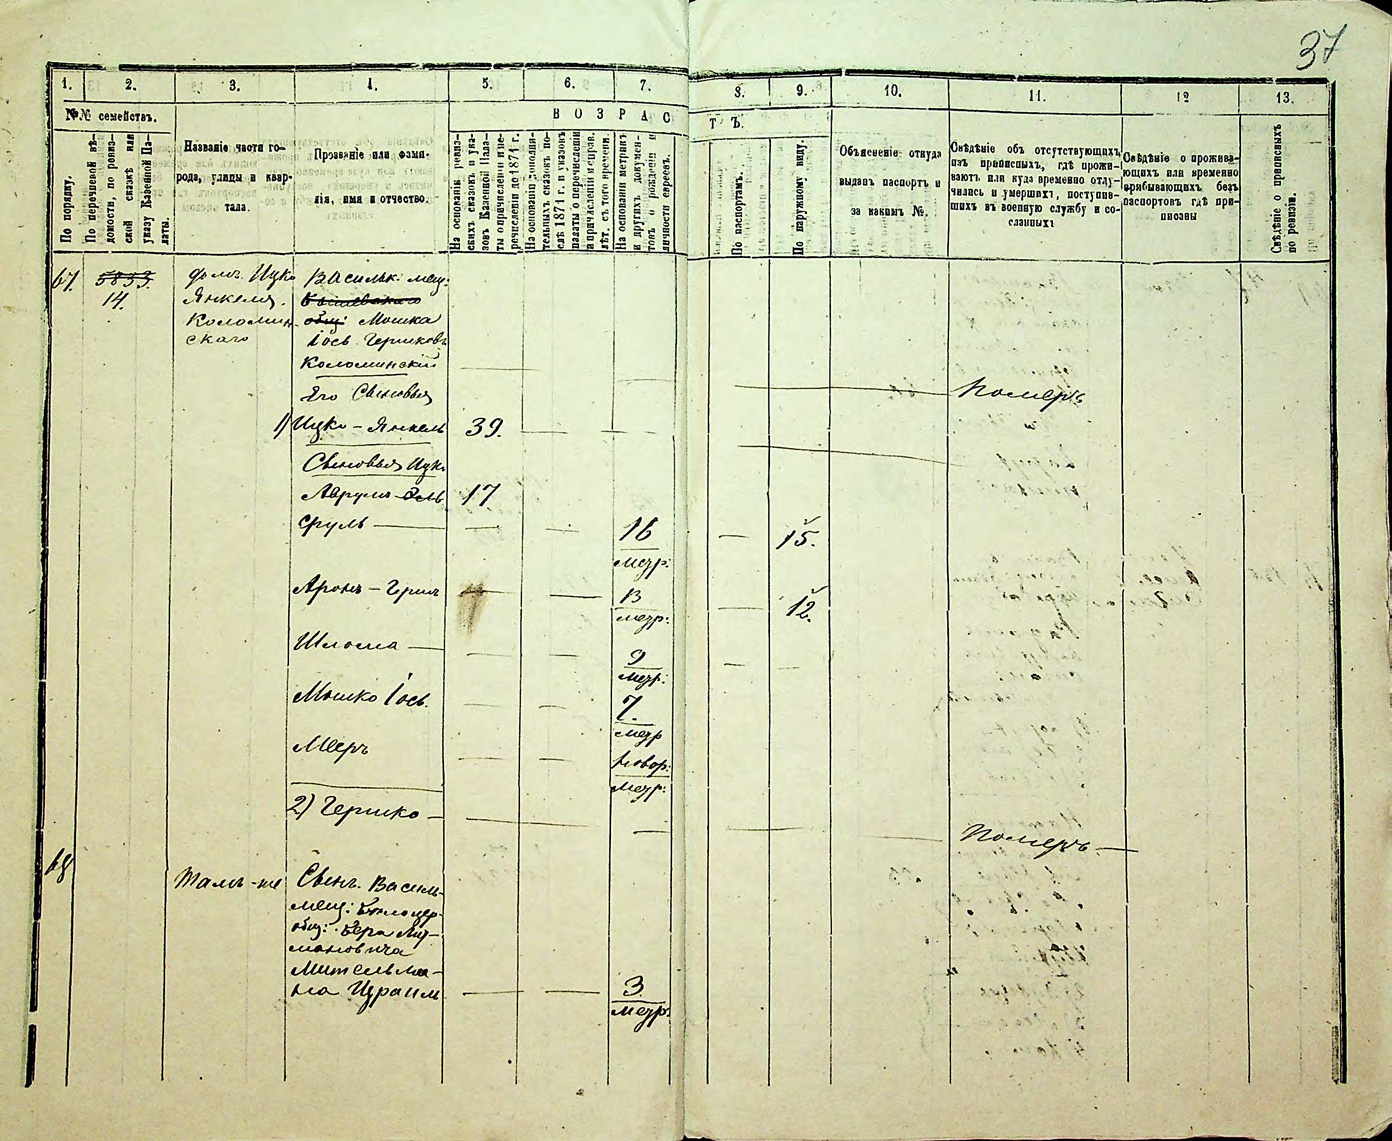 37
1. 2. 3. 4. 5. 6. 7. 8. 9. 10. 11. 12 13.
№№ семействъ.
По порядку.
По перечневой вѣ-
домости, по ревиз-
ской сказкѣ или
указу Казенной Па-
латы.
Названіе части го-
рода, улицы и квар-
тала.
Прозваніе или фами-
лія, имя и отчество.
ВОЗРАСТЪ.
На основаніи ревиз-
скихъ сказокъ и ука-
зовъ Казенной Пала-
ты о причисленіи и пе-
речисленіи до 1871 г.
На основаніи дополни-
тельныхъ сказокъ по-
слѣ 1871 г. и указовъ
палаты о перечисленіи
и причисленіи и справ.
лѣт. съ того времени.
На основаніи метрикъ
и другихъ докумен-
товъ о рожденіи и
личности евреевъ.
По паспортамъ.
По наружному виду.
Объясненіе откуда
выданъ паспортъ и
за какимъ №.
Свѣдѣніе объ отсутствующихъ
изъ приписныхъ, гдѣ прожи-
ваютъ или куда временно отлу-
чились и умершихъ, поступив-
шихъ въ военную службу и со-
сланныхъ
Свѣдѣніе о прожива-
ющихъ или временно
прибывающихъ безъ
паспортовъ гдѣ при-
писаны
Свѣдѣніе о приписныхъ
по ревизіи.
67. 5833. домъ Ицко Васильк. мещ.
14. Янкеля
Коломин- общ: Мошка
скаго Іось Гершковъ
Коломинскій
Его Сыновья Померъ
1) Ицко - Янкель 39.
Сыновья Ицк.
Аврумъ-Ель 17
Сруль 16 15.
метр:
Аронъ - Гершъ 13 12.
метр:
Шлома 9
метр:
Мошко Іось. 7.
метр
Мееръ новор:
метр:
2) Гершко Померъ
68 Тамъ-же Сынъ Василь.
мещ: Бѣлоцер-
общ: Бера Лиз-
мановича
Мительма-
на Израиль 3
метр